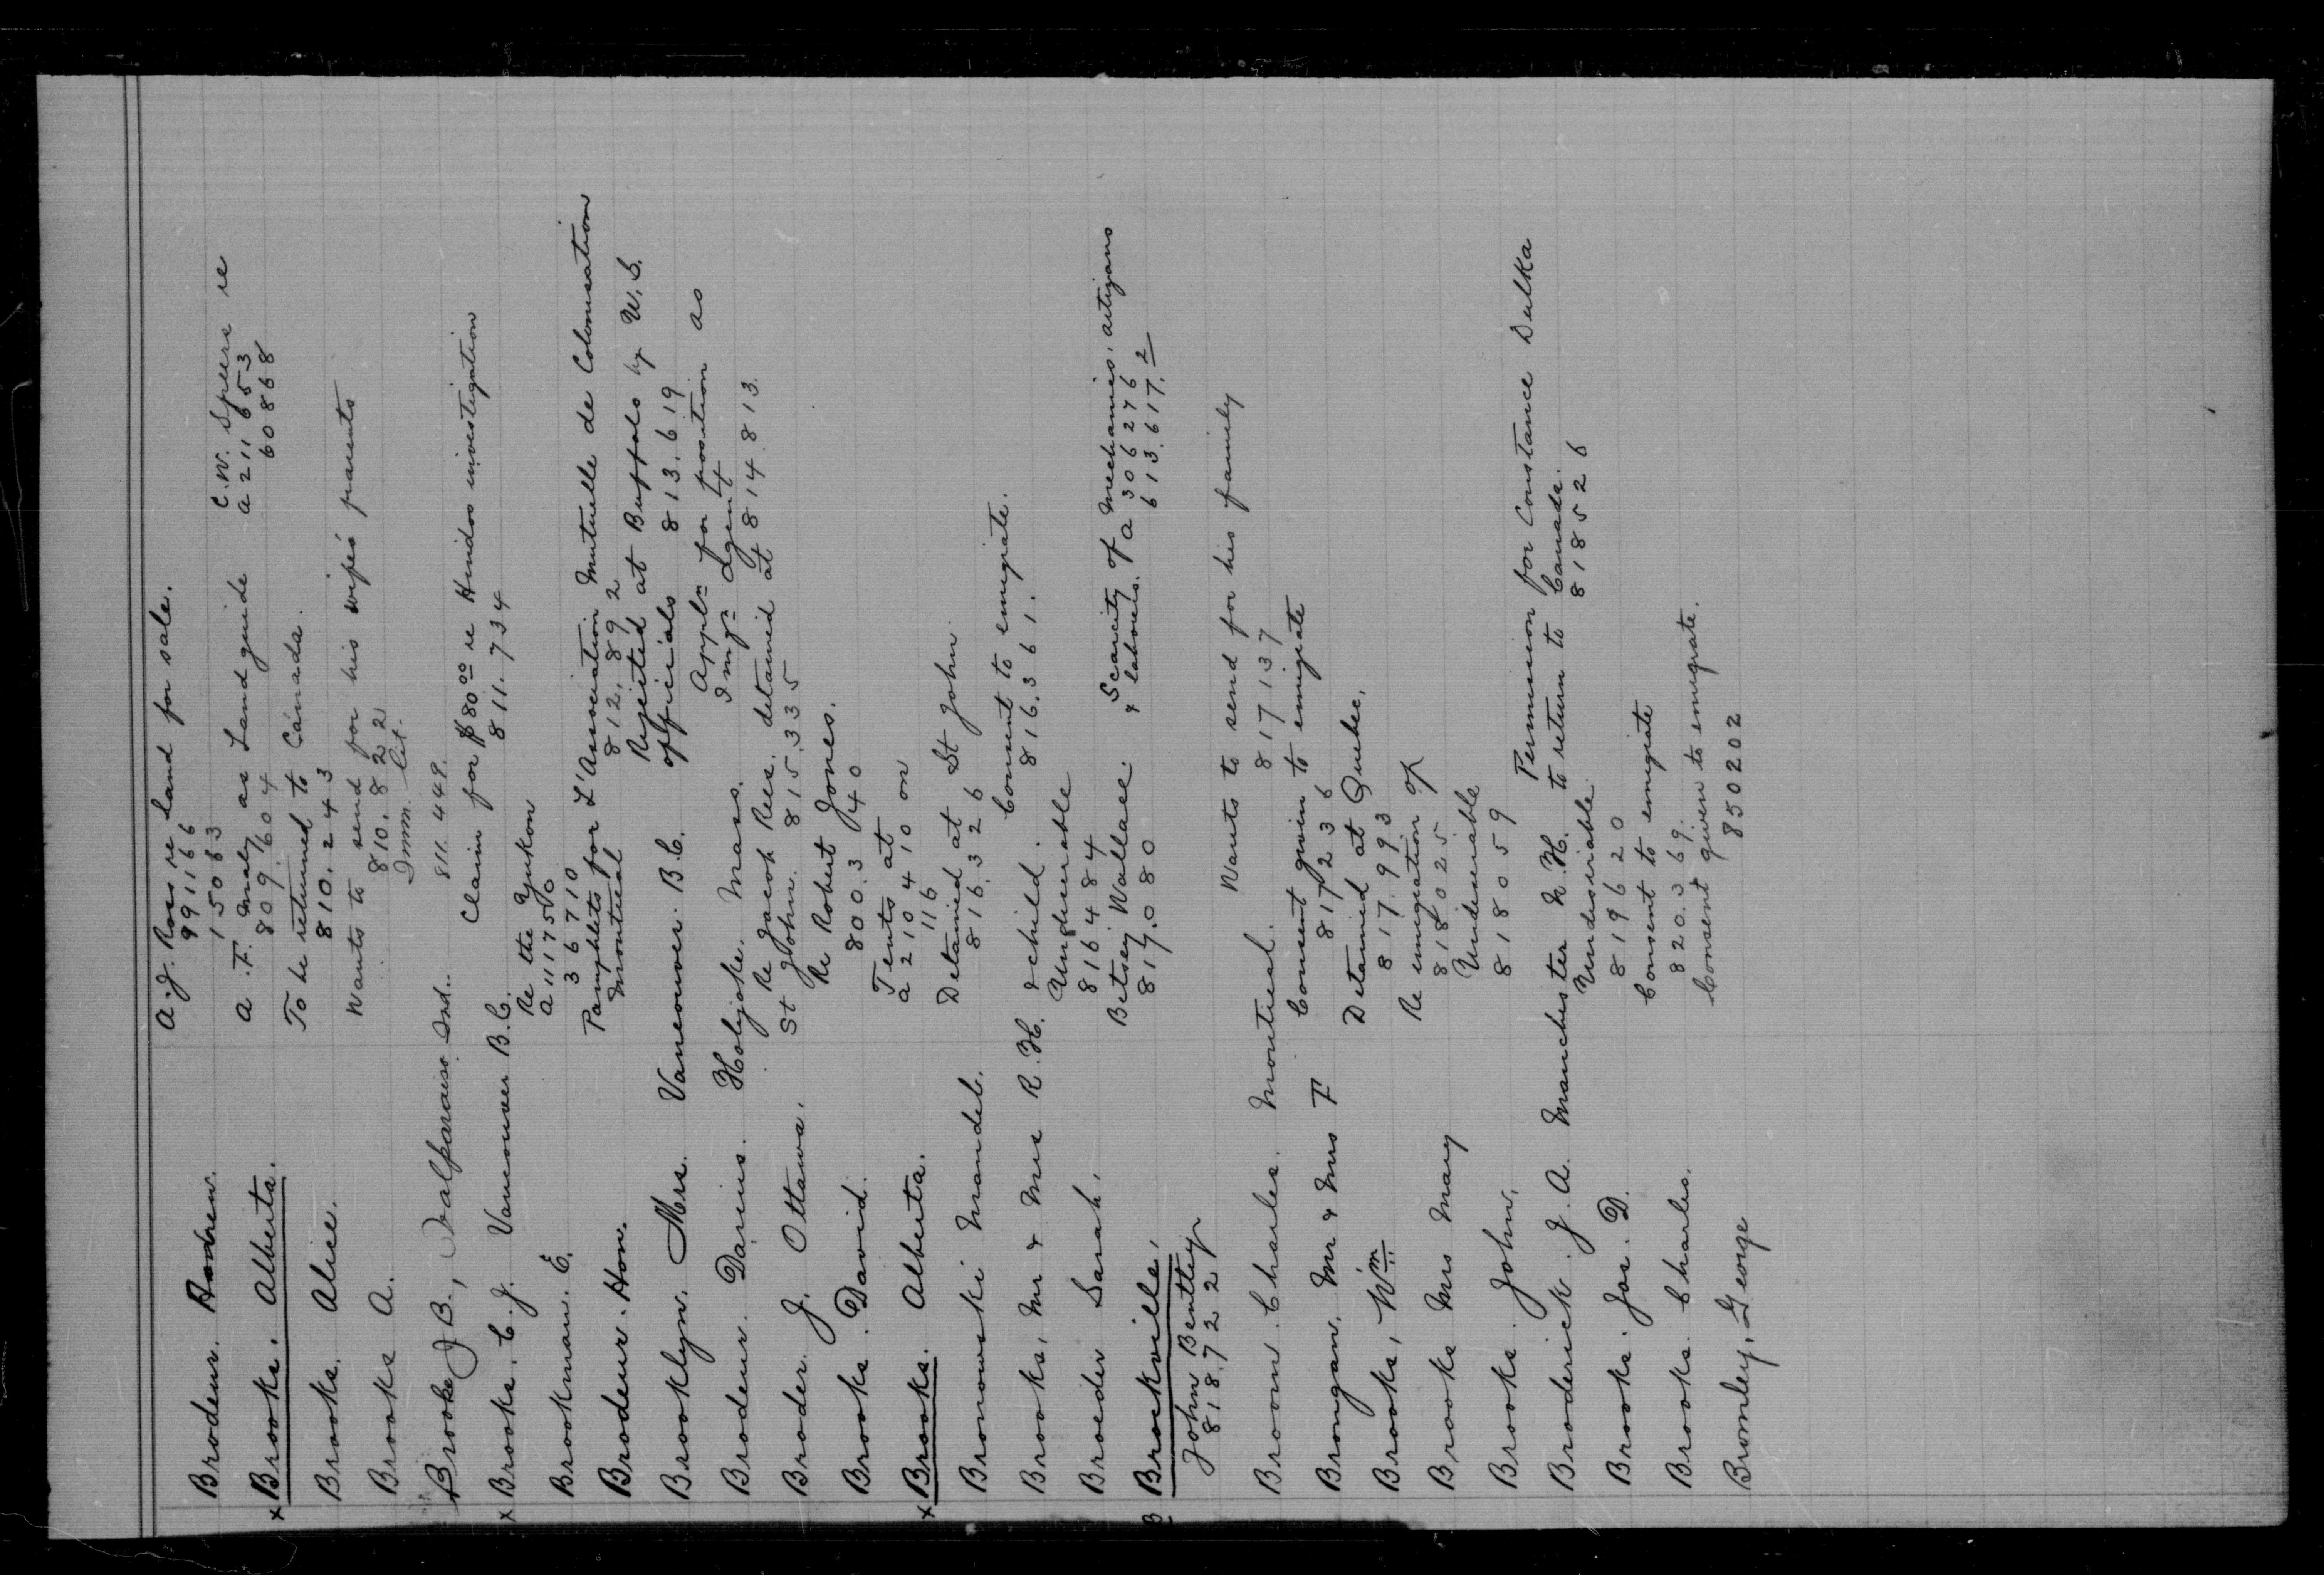 A. J. Ross re land for sale.
Brodeur. Andrew. 991166
15063
C. W. Speers re
x Brooks. Alberta. A. F. Maly as Land guide a 211653
809.604 60868
Brooks. Alice. To be returned to Canada.
810.243
Brooks A. Wants to send for his wife's parents
810.822
Imm. Lit.
Brooke J B., Valparaiso Ind. 811.449.
x Brooks. C. J. Vancouver B.C. Claim for $80.00 re Hindoo investigation
811.734
Re the Yukon
Brookman. E. a 111750
36710
Brodeur. Hon. Pamphlets for L'Association Mutuelle de Colonisation
Montreal 812.892
Brooklyn. Mrs. Vancouver. B.C. Rejected at Buffalo by U.S.
officials 813.619
Brodeur. Darius. Holyoke. Mass. Appln for position as
Immgn Agent 814.813.
Re Jacob Rees. detained at
Broder. J. Ottawa. St John. 815.335
Brooks. David. Re Robert Jones.
800.340
x Brooks. Alberta. Tents at
a 210410 on
116
Bronowski Mandel. Detained at St John.
816.326
Brooks, Mr & Mrs R. H. & child. Consent to emigrate.
816.361.
Broeder Sarah. Undesirable
816484
B Brockville. Betsey Wallace. & Scarcity of mechanics, artizans
817.080 & labourers. a 306276
613.617.2
John Bentley
818.722
Broom. Charles. Montreal. Wants to send for his family
817137
Brongan. Mr & Mrs F Consent given to emigrate
817236
Brooks, Wm. Detained at Quebec.
817.993
Brooks Mrs Mary Re emigration of
818025
Brooks. John. Undesirable
818059
Broderick. J. A. Manchester N.H. Permission for Constance Dulka
to return to Canada.
818526
Brooks. Jos. D. Undesirable
819620
Brooks. Charles. Consent to emigrate
820.369.
Bromley, George Consent given to emigrate.
850202